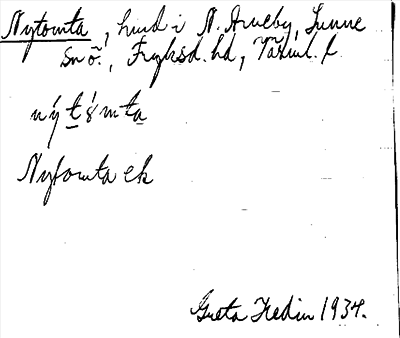 Nytomta, hmd i N. Arneby, Sunne
sn ö., Fryksd. hd, Värml. l.
Nytomta ek
Greta Hedin 1934.